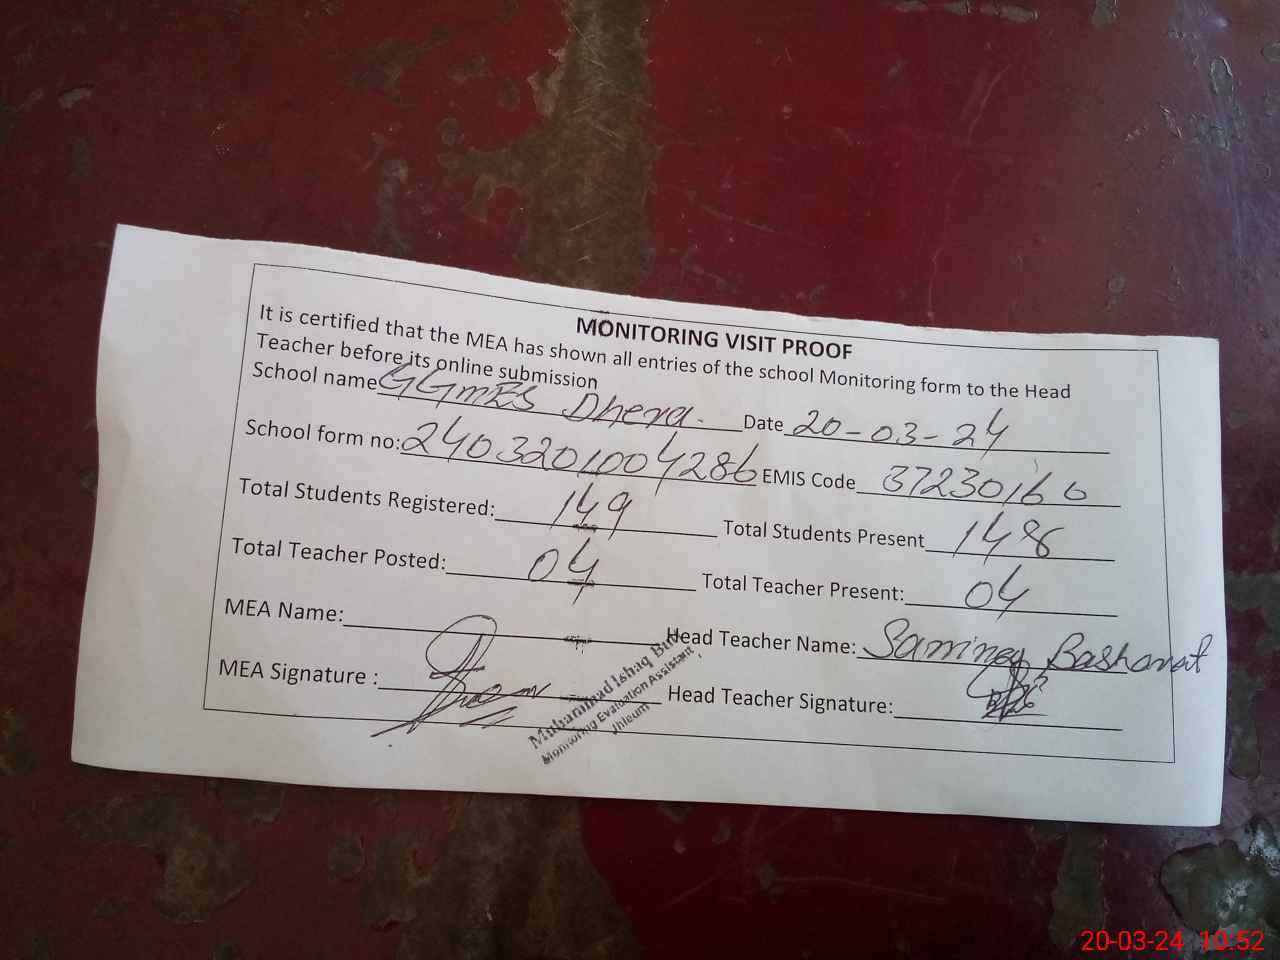 MONITORING VISIT PROOF
It is certified that the MEA has shown all entries of the school Monitoring form to the Head
Teacher before its online submission
School name GGMES Dhera. Date 20-03-24
School form no: 2403201004286 EMIS Code 37230160
Total Students Registered: 149 Total Students Present 148
Total Teacher Posted: 04 Total Teacher Present: 04
MEA Name: Head Teacher Name: Basharat
MEA Signature : Head Teacher Signature:
Muhammad Ishaq
Monitoring Evaluation Assistant
Jhleum
20-03-24 10:52